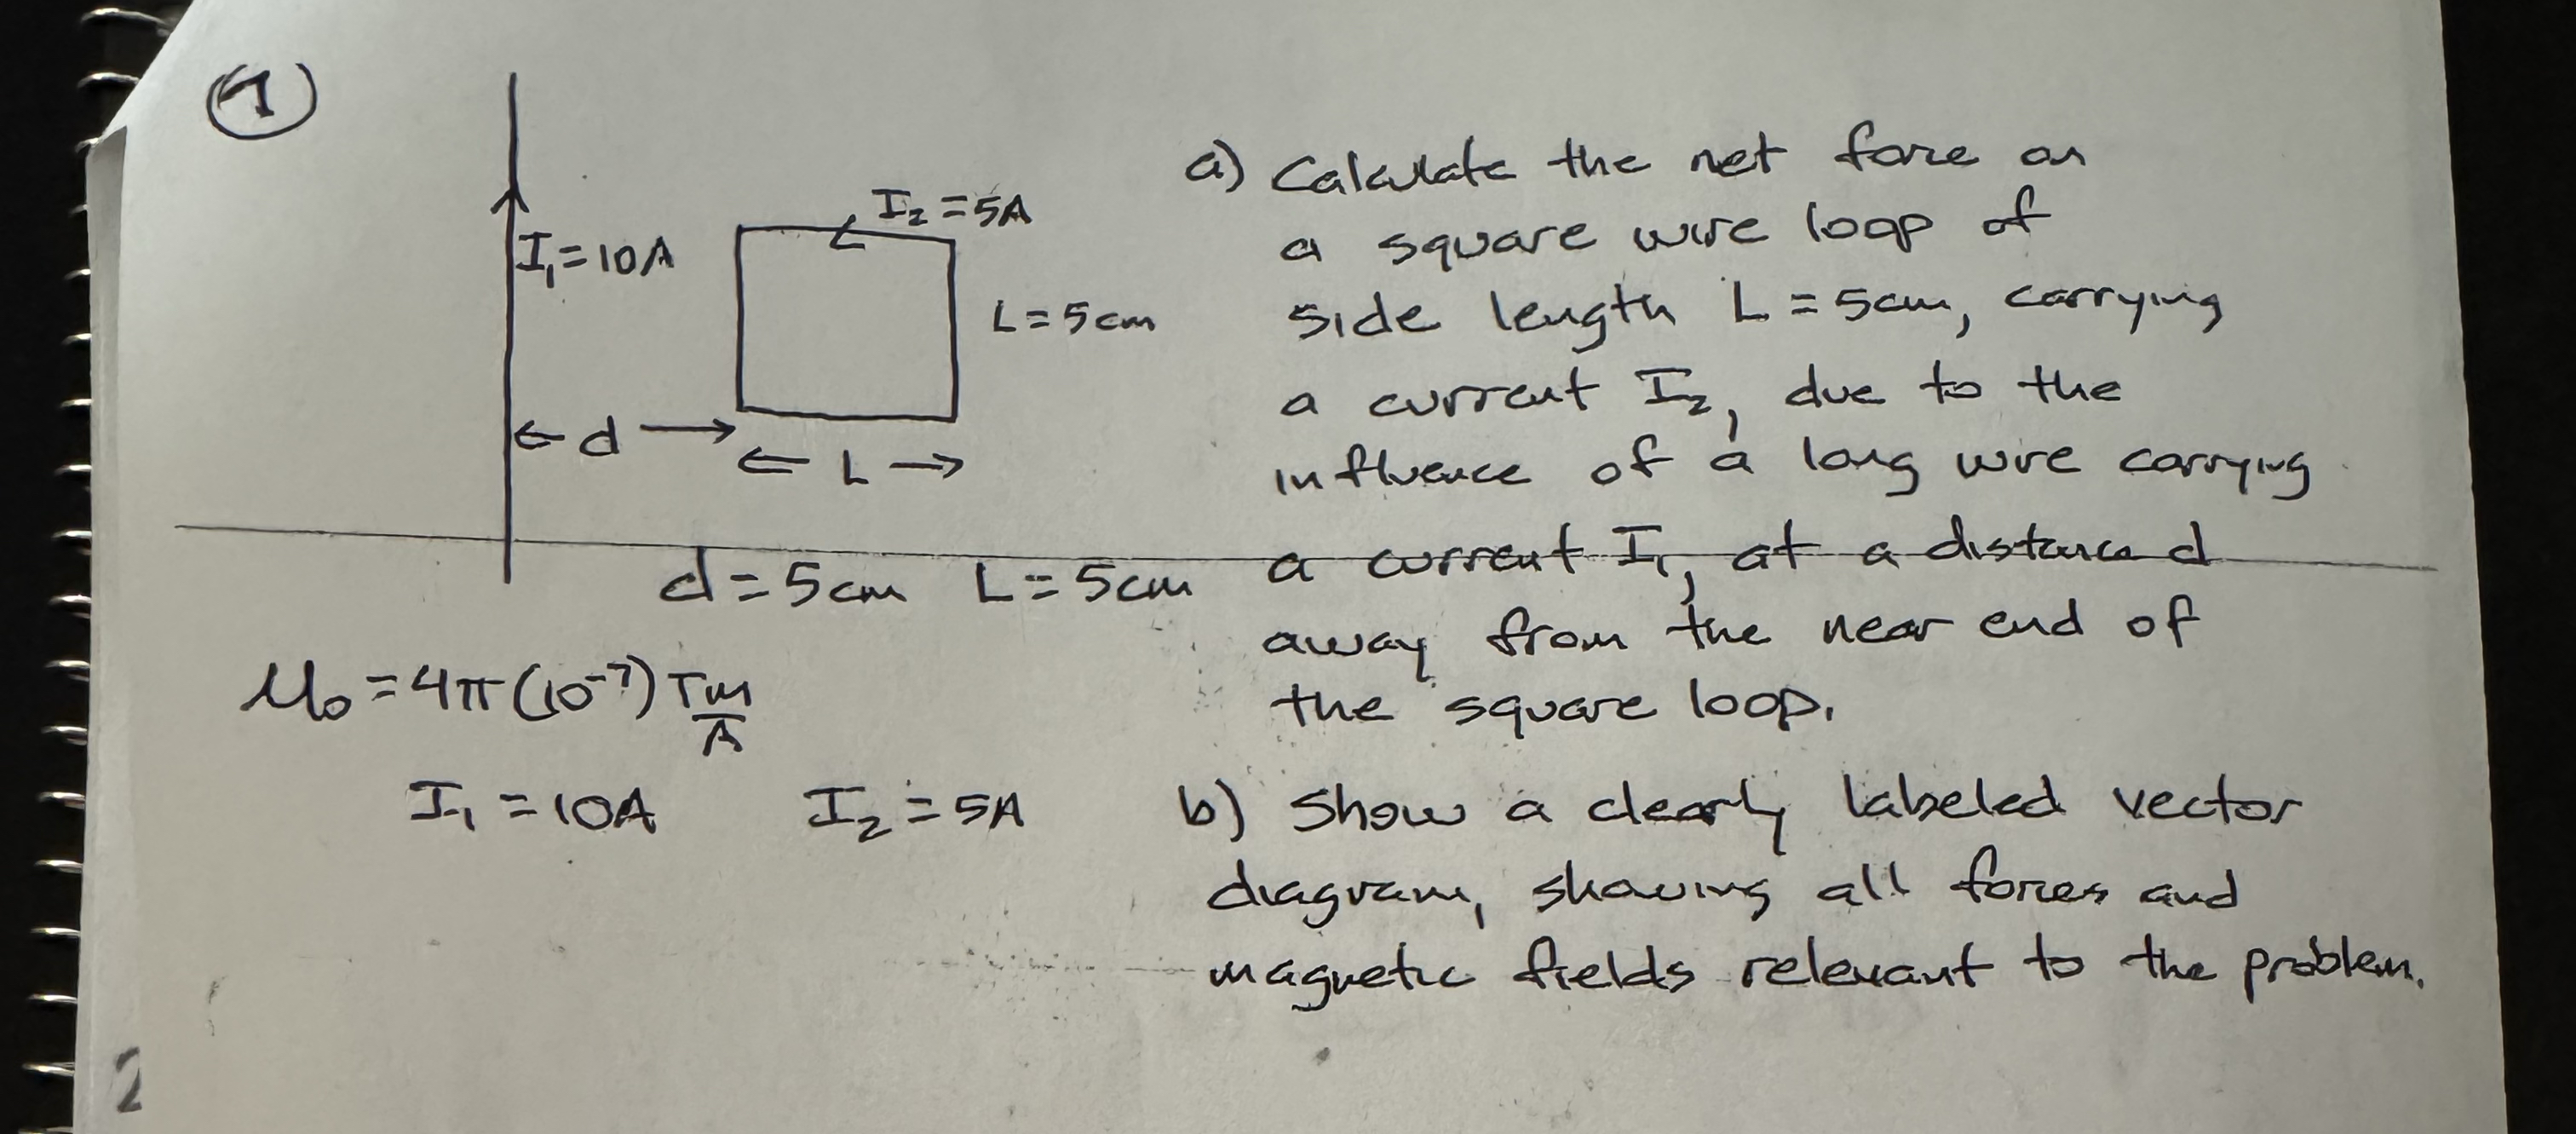 1
I₂ = 5A
I₁ = 10A
L = 5cm
← d →
← L →
d = 5cm L = 5cm
μ₀ = 4π(10⁻⁷) Tm/A
I₁ = 10A I₂ = 5A
a) Calculate the net force on
a square wire loop of
side length L = 5cm, carrying
a current I₂, due to the
influence of a long wire carrying
a current I₁, at a distance d
away from the near end of
the square loop.
b) Show a clearly labeled vector
diagram, showing all forces and
magnetic fields relevant to the problem.
2